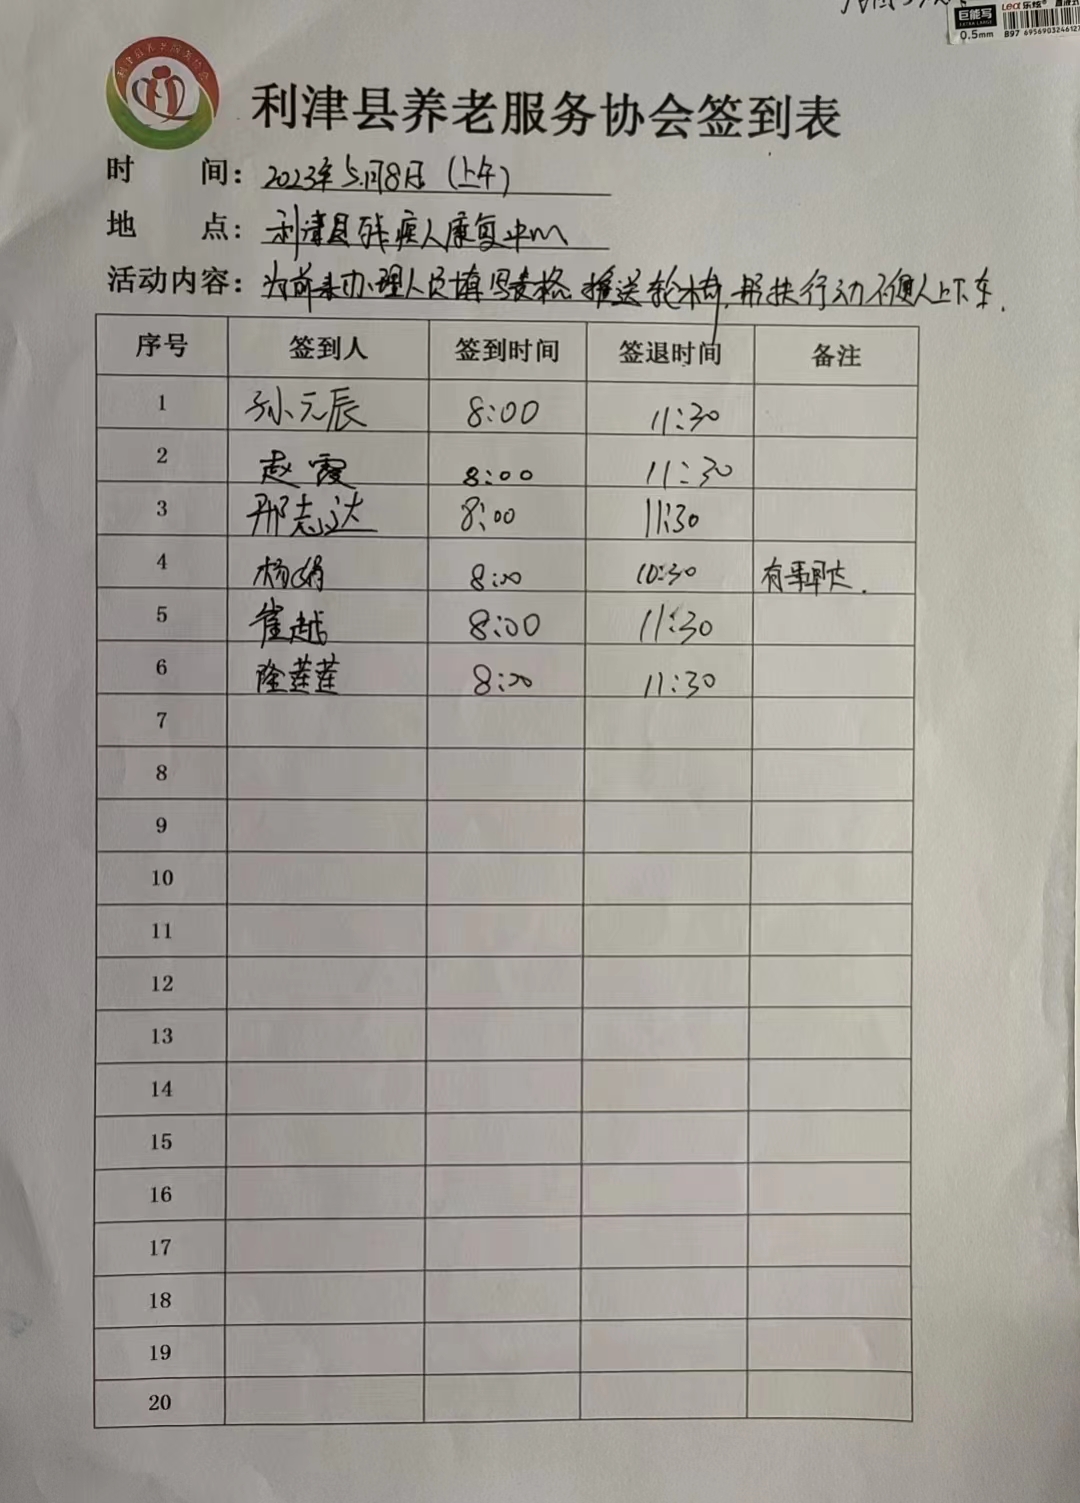 巨能写
EXTRA LARGE
0.5mm
Lea 乐炫
B97 6956903246127
利津县养老服务协会
利津县养老服务协会签到表
时 间：2023年5月8日（上午）
地 点：利津县残疾人康复中心
活动内容：为前来办理人员填写表格、推送轮椅、帮扶行动不便人上下车.
序号 签到人 签到时间 签退时间 备注
1 孙元辰 8:00 11:30
2 赵霞 8:00 11:30
3 邢志达 8:00 11:30
4 杨娟 8:00 10:30 有事早走.
5 崔越 8:00 11:30
6 隆莲莲 8:00 11:30
7
8
9
10
11
12
13
14
15
16
17
18
19
20